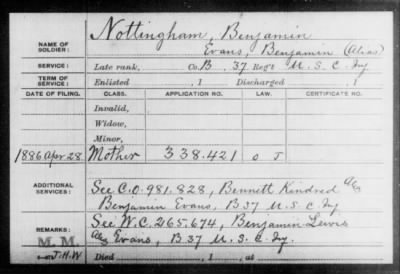 Nottingham, Benjamin
NAME OF SOLDIER:
Evans, Benjamin (Alias)
SERVICE: Late rank, Co. B, 37 Reg't U.S.C. Inf.
TERM OF SERVICE: Enlisted , 1 Discharged , 1
DATE OF FILING. CLASS. APPLICATION NO. LAW. CERTIFICATE NO.
Invalid,
Widow,
Minor,
1886 Apr 28. Mother 338.421 O J
ADDITIONAL SERVICES: See C.O. 981.828, Bennett Kindred alias
Benjamin Evans, B 37 U.S.C. Inf
REMARKS: See W.C. 265.674, Benjamin Lewis
alias Evans, B 37 U.S.C. Inf.
M.M.
J.H.W Died , 1 , at